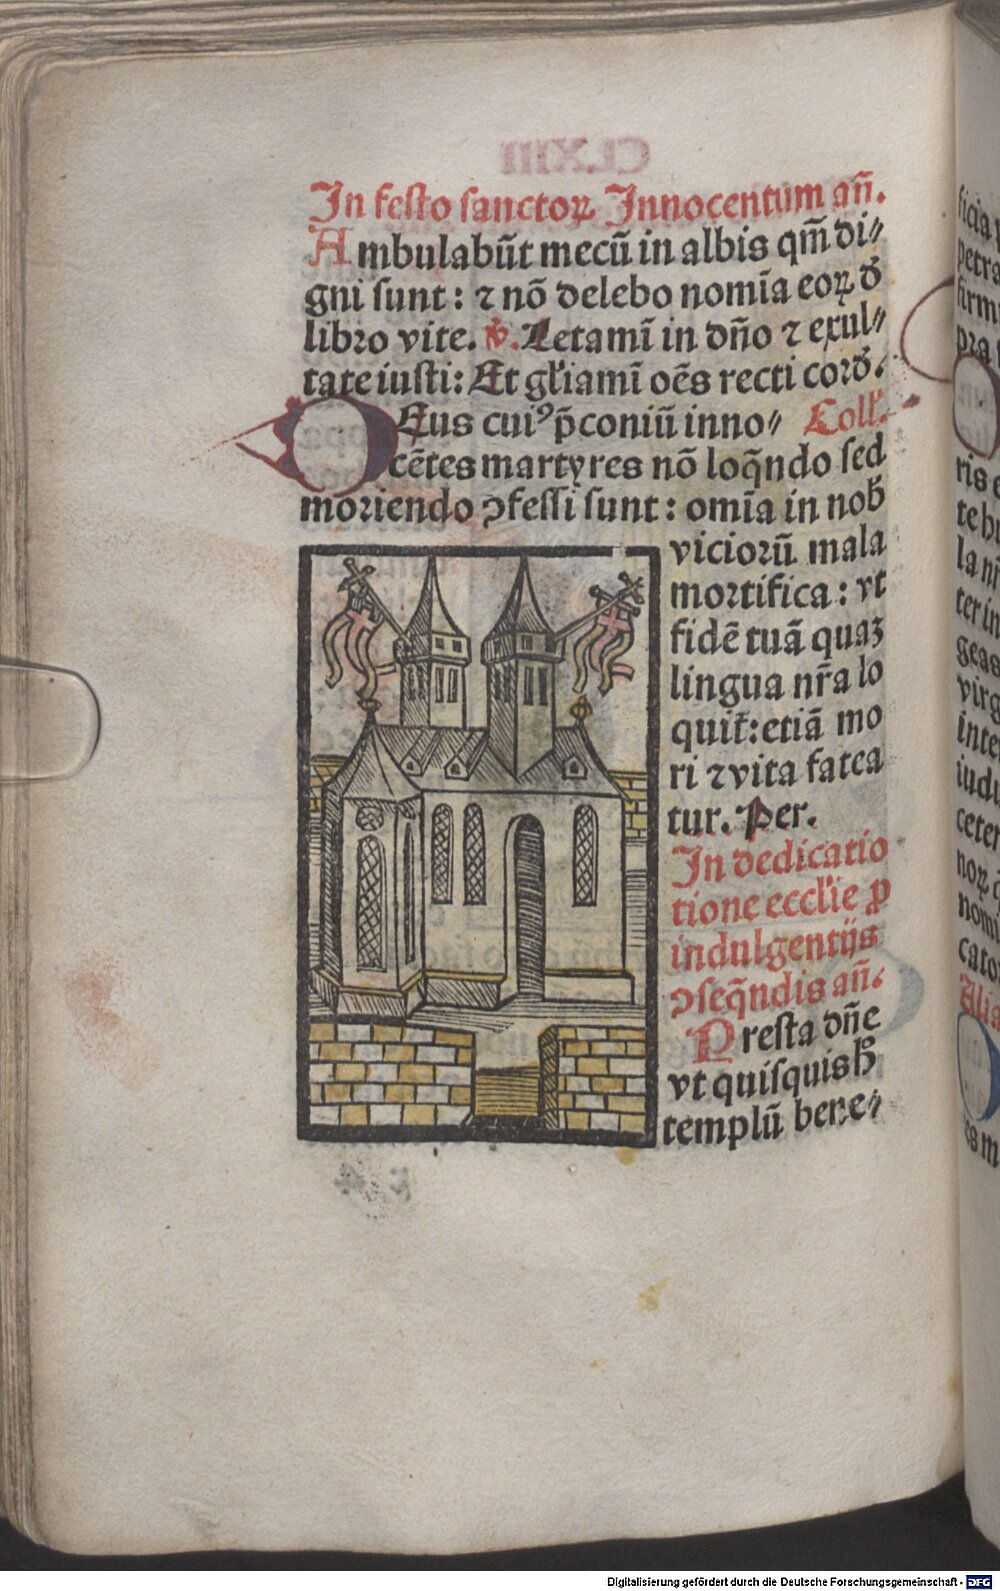 In festo sanctoꝝ Innocentum an̄.
Ambulabūt mecū in albis qm̄ di⸗
gni sunt: ⁊ nō delebo nomīa eoꝝ đ
libro vite. ℣. Letamī in dn̄o ⁊ exul⸗
tate iusti: Et gl̄iamī oēs recti cord̄.
DEus cuiꝰ p̄coniū inno⸗ Coll̄.
cētes martyres nō loq̄ndo sed
moriendo ꝯfessi sunt: omīa in nob̄
viciorū mala
mortifica: vt
fidē tuā quaꝫ
lingua nr̄a lo
quit̄: etiā mo
ri ⁊ vita fatea
tur. Per.
In dedicatio
tione eccl̄ie ꝓ
indulgentijs
ꝯseq̄ndis an̄.
Presta dn̄e
vt quisquis h̄
templū bene⸗
ficia
petra
firm
pra
ris
te
la
ter in
geas
virg
inte
iudi
ceter
noꝝ
nomi
cato
Alia
es m
Digitalisierung gefördert durch die Deutsche Forschungsgemeinschaft - DFG